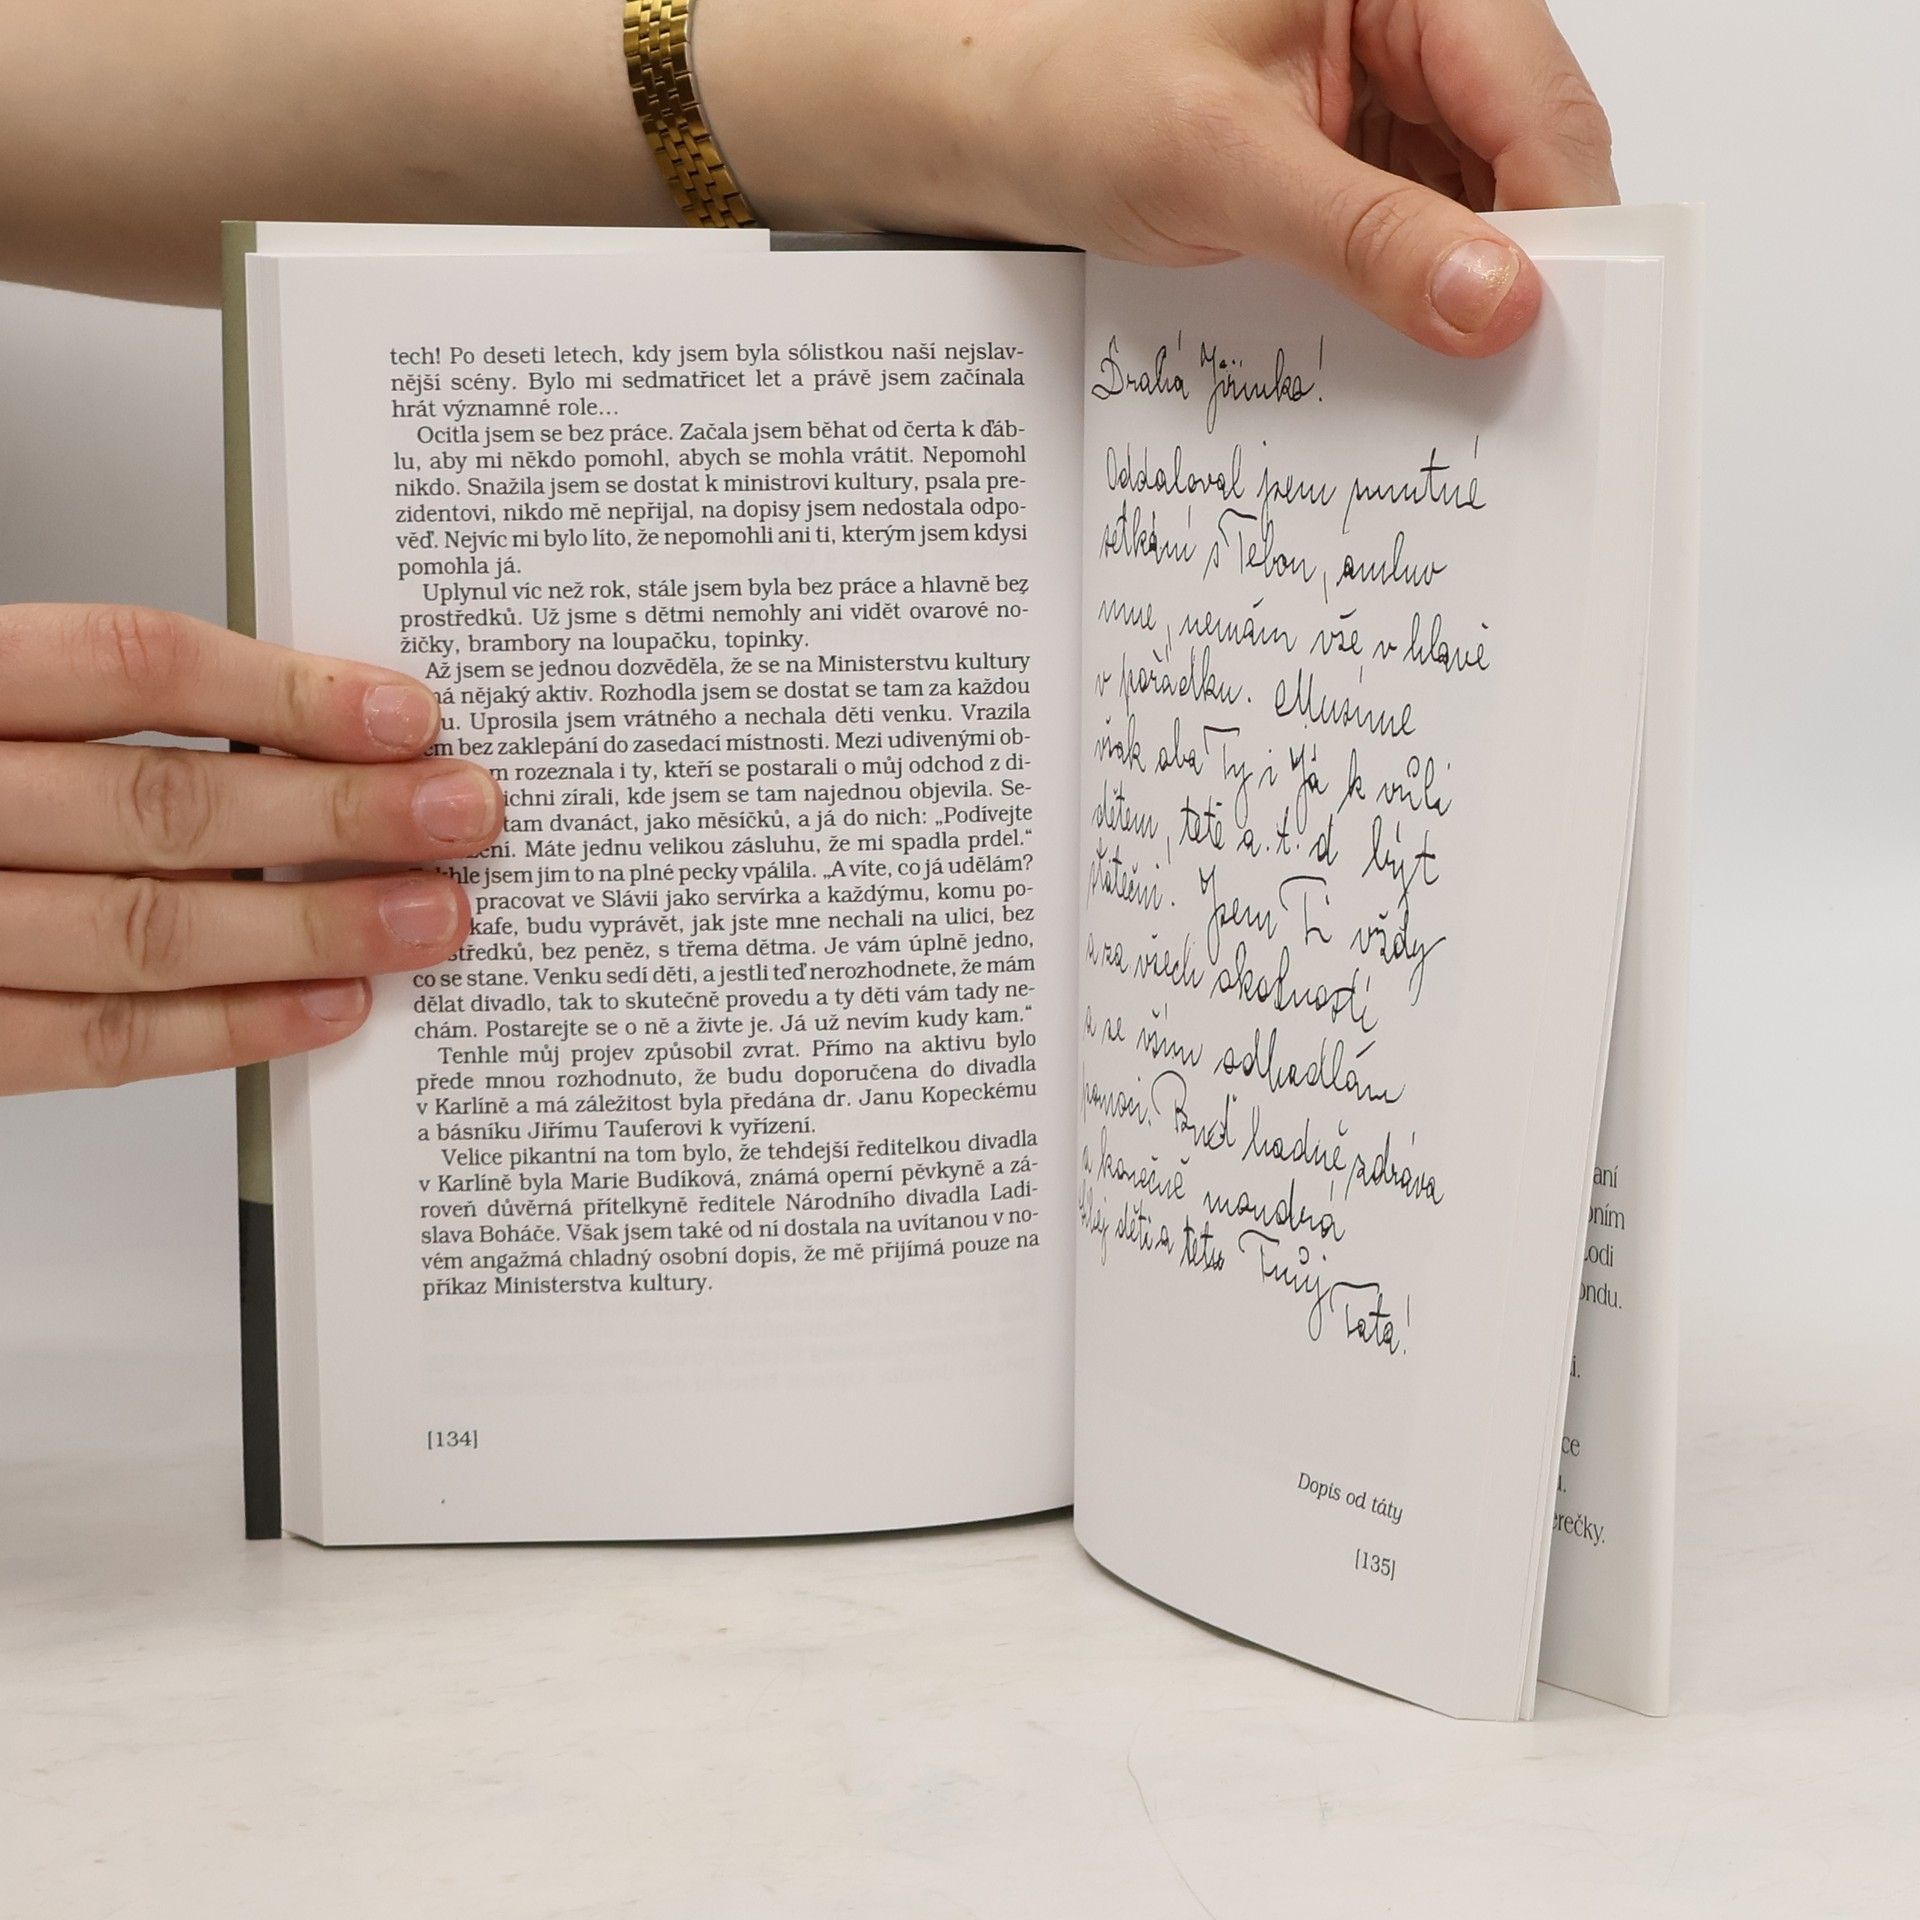 tech! Po deseti letech, kdy jsem byla sólistkou naší nejslav-
nější scény. Bylo mi sedmatřicet let a právě jsem začínala
hrát významné role...
Ocitla jsem se bez práce. Začala jsem běhat od čerta k ďáb-
lu, aby mi někdo pomohl, abych se mohla vrátit. Nepomohl
nikdo. Snažila jsem se dostat k ministrovi kultury, psala pre-
zidentovi, nikdo mě nepřijal, na dopisy jsem nedostala odpo-
věď. Nejvíc mi bylo líto, že nepomohli ani ti, kterým jsem kdysi
pomohla já.
Uplynul víc než rok, stále jsem byla bez práce a hlavně bez
prostředků. Už jsme s dětmi nemohly ani vidět ovarové no-
žičky, brambory na loupačku, topinky.
Až jsem se jednou dozvěděla, že se na Ministerstvu kultury
nějaký aktiv. Rozhodla jsem se dostat se tam za každou
Uprosila jsem vrátného a nechala děti venku. Vrazila
bez zaklepání do zasedací místnosti. Mezi udivenými ob-
rozeznala i ty, kteří se postarali o můj odchod z di-
zírali, kde jsem se tam najednou objevila. Se-
tam dvanáct, jako měsíčků, a já do nich: „Podívejte
Máte jednu velikou zásluhu, že mi spadla prdel.“
jsem jim to na plné pecky vpálila. „A víte, co já udělám?
pracovat ve Slávii jako servírka a každýmu, komu po-
kafe, budu vyprávět, jak jste mne nechali na ulici, bez
bez peněz, s třema dětma. Je vám úplně jedno,
co se stane. Venku sedí děti, a jestli teď nerozhodnete, že mám
dělat divadlo, tak to skutečně provedu a ty děti vám tady ne-
chám. Postarejte se o ně a živte je. Já už nevím kudy kam.“
Tenhle můj projev způsobil zvrat. Přímo na aktivu bylo
přede mnou rozhodnuto, že budu doporučena do divadla
v Karlíně a má záležitost byla předána dr. Janu Kopeckému
a básníku Jiřímu Tauferovi k vyřízení.
Velice pikantní na tom bylo, že tehdejší ředitelkou divadla
v Karlíně byla Marie Budíková, známá operní pěvkyně a zá-
roveň důvěrná přítelkyně ředitele Národního divadla Ladi-
slava Boháče. Však jsem také od ní dostala na uvítanou v no-
vém angažmá chladný osobní dopis, že mě přijímá pouze na
příkaz Ministerstva kultury.
[134]
Drahá Jiřinko!
Oddaloval jsem smutné
setkání s Tebou, omluv
mne, nemám vše v hlavě
v pořádku. Musíme
však oba Ty i Já k vůli
dětem, tetě a.t.d být
stateční. Jsem Ti vždy
a za všech okolností
a se vším odhodlán
pomoci. Buď hodně zdráva
a konečně moudrá
děti a tetu Tvůj
Táta!
Dopis od táty
[135]